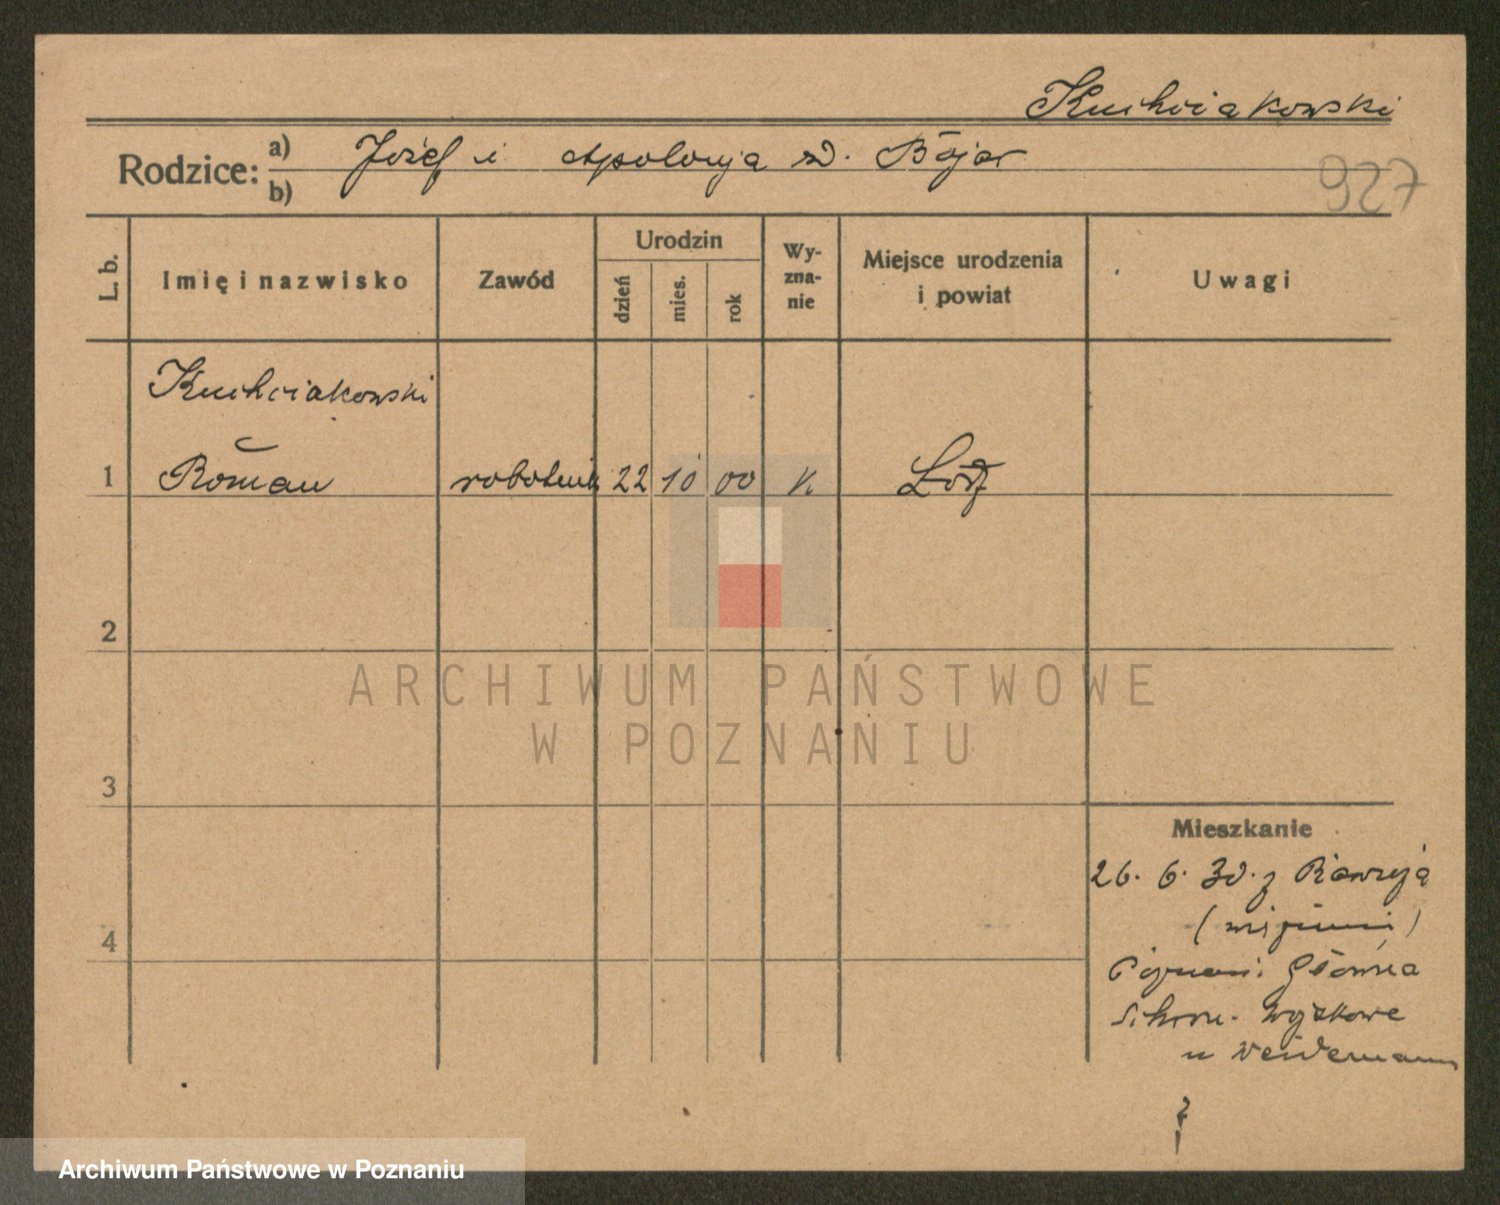 Kuchciakowski
Rodzice: a) Józef i Apolonja z d. Bójar
b)
927
L. b.
Imię i nazwisko
Zawód
Urodzin
dzień
mies.
rok
Wy-
zna-
nie
Miejsce urodzenia
i powiat
Uwagi
Kuchciakowski
1 Roman robotnik 22 10 00 K Łódź
2
3
4
Mieszkanie
26. 6. 30. z
Poznań. Główna
Schron. Wojskowe
u Weidemann
ARCHIWUM PAŃSTWOWE
W POZNANIU
Archiwum Państwowe w Poznaniu